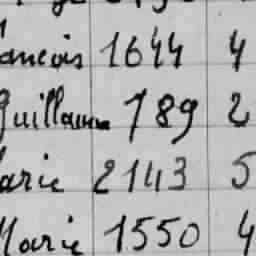 ancois 1644 4
Guillaume 789 2
arie 2143 5
Marie 1550 4